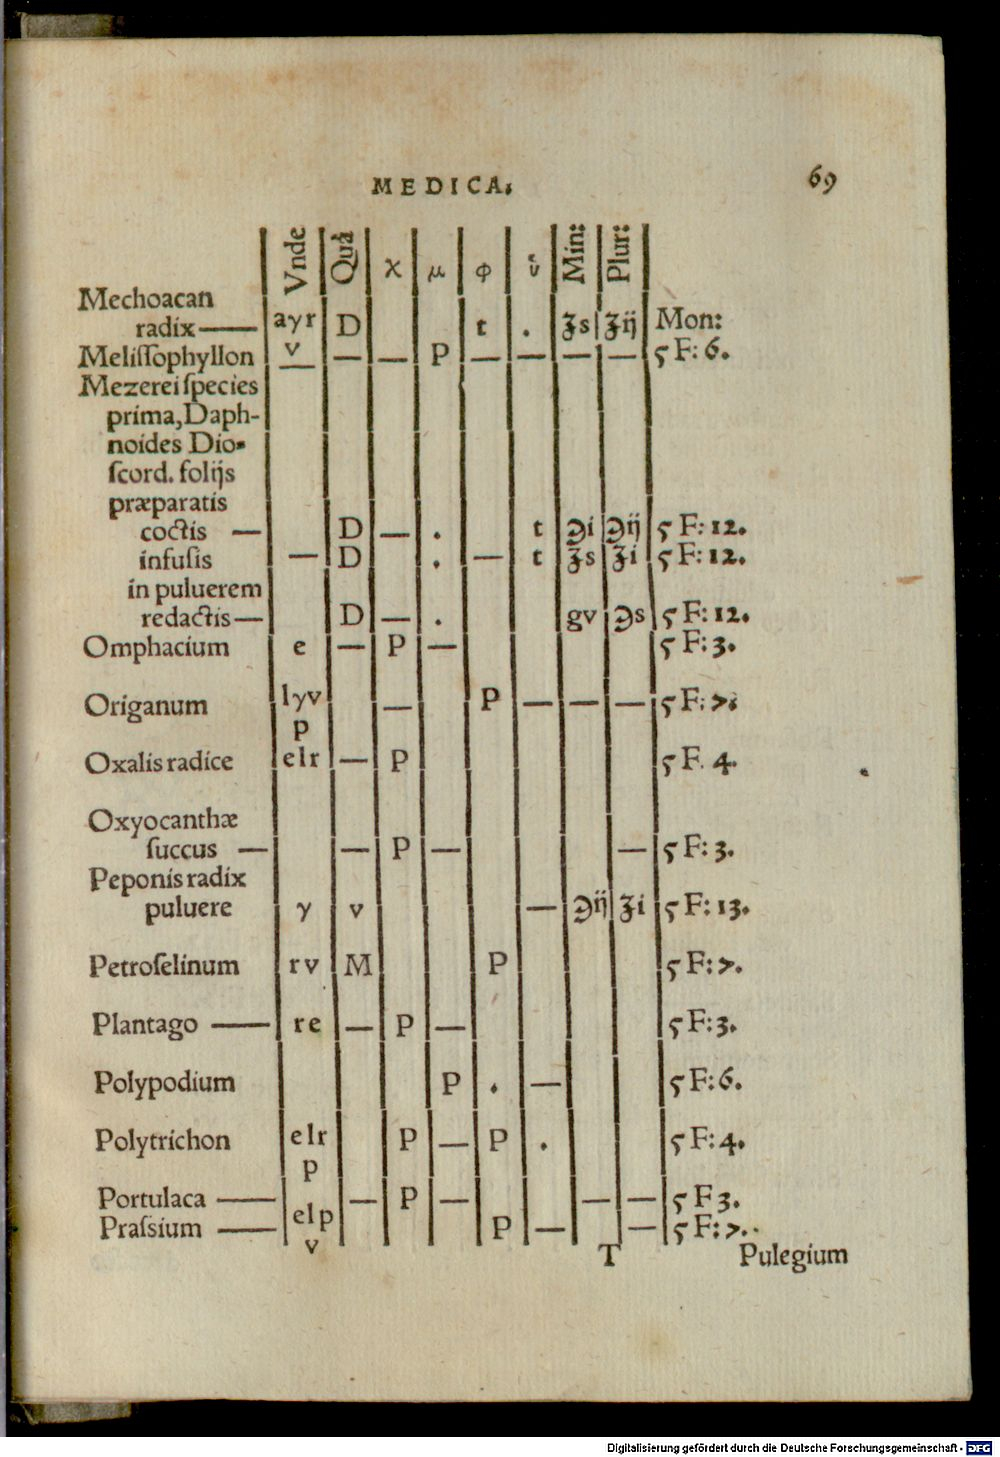 MEDICA.
69
Vnde Quã χ μ φ ύ Min: Plur:
Mechoacan
radix— aγr D t . ʒs ʒij Mon:
Meliſſophyllon v — — P — — — — ς F: 6.
Mezerei ſpecies
prima, Daph-
noides Dio-
ſcord. folijs
præparatis
coctis — D — . t ℈i ℈ij ς F: 12.
infuſis — D . — t ʒs ʒi ς F: 12.
in puluerem
redactis— D — . gv ℈s ς F: 12.
Omphacium e — P — ς F: 3.
Origanum lγv — P — — — ς F: 7.
p
Oxalis radice elr — P ς F. 4.
Oxyocanthæ
ſuccus — — P — — ς F: 3.
Peponis radix
puluere γ v — ℈ij ʒi ς F: 13.
Petroſelinum rv M P ς F: 7.
Plantago — re — P — ς F: 3.
Polypodium P . — ς F: 6.
Polytrichon elr P — P . ς F: 4.
p
Portulaca — — P — — — ς F 3.
Praſsium — elp P — — ς F: 7.
v
T Pulegium
Digitalisierung gefördert durch die Deutsche Forschungsgemeinschaft - DFG